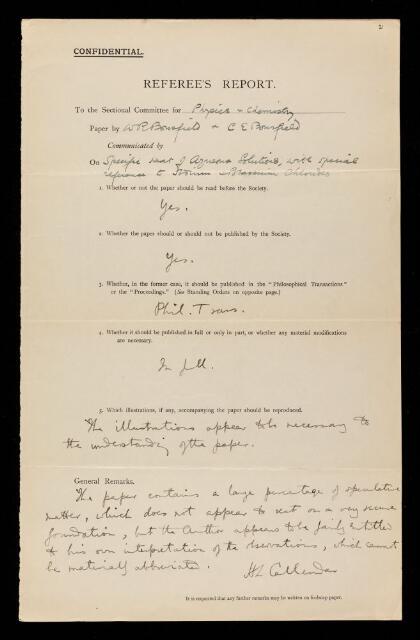 2
CONFIDENTIAL.
REFEREE'S REPORT.
To the Sectional Committee for Physics & Chemistry
Paper by W R Bousfield & C E Bousfield
Communicated by
On Specific heat of Aqueous Solutions, with special
reference to Sodium & Potassium Chlorides
1. Whether or not the paper should be read before the Society.
Yes.
2. Whether the paper should or should not be published by the Society.
Yes.
3. Whether, in the former case, it should be published in the "Philosophical Transactions"
or the "Proceedings." (See Standing Orders on opposite page.)
Phil. Trans.
4. Whether it should be published in full or only in part, or whether any material modifications
are necessary.
In full.
5. Which illustrations, if any, accompanying the paper should be reproduced.
The illustrations appear to be necessary to
the understanding of the paper.
General Remarks.
The paper contains a large percentage of speculative
matter, which does not appear to rest on a very secure
foundation, but the Author appears to be fairly entitled
to his own interpretation of the observations, which cannot
be materially abbreviated.
H L Callendar
It is requested that any further remarks may be written on foolscap paper.